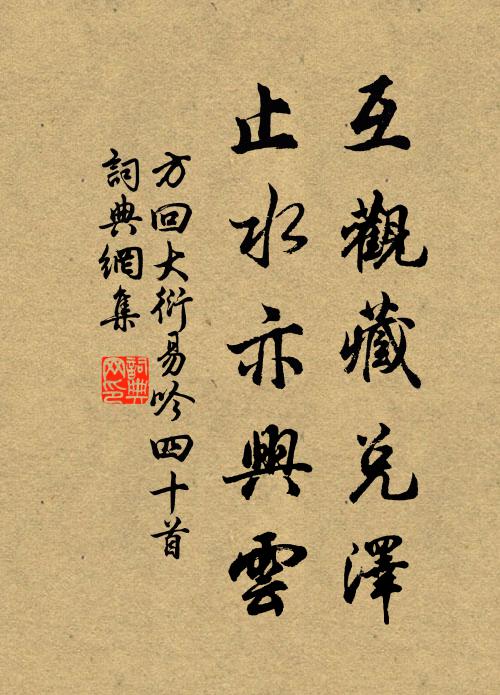 互觀藏兑澤
止水亦興雲
方回大衍易吟四十首
詞典網集
詞典網印